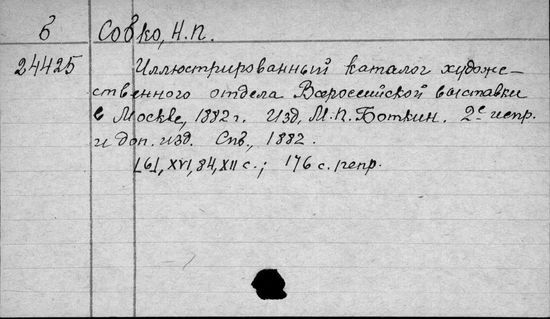 б Совко, Н.П.
24425 Иллюстрированный каталог художе-
ственного отдела Всероссийской выставки
в Москве, 1882 г. Изд. М.П. Боткин. 2е испр.
и доп. изд. Спб., 1882.
[6], XVI, 84, XII с.; 176 с. репр.